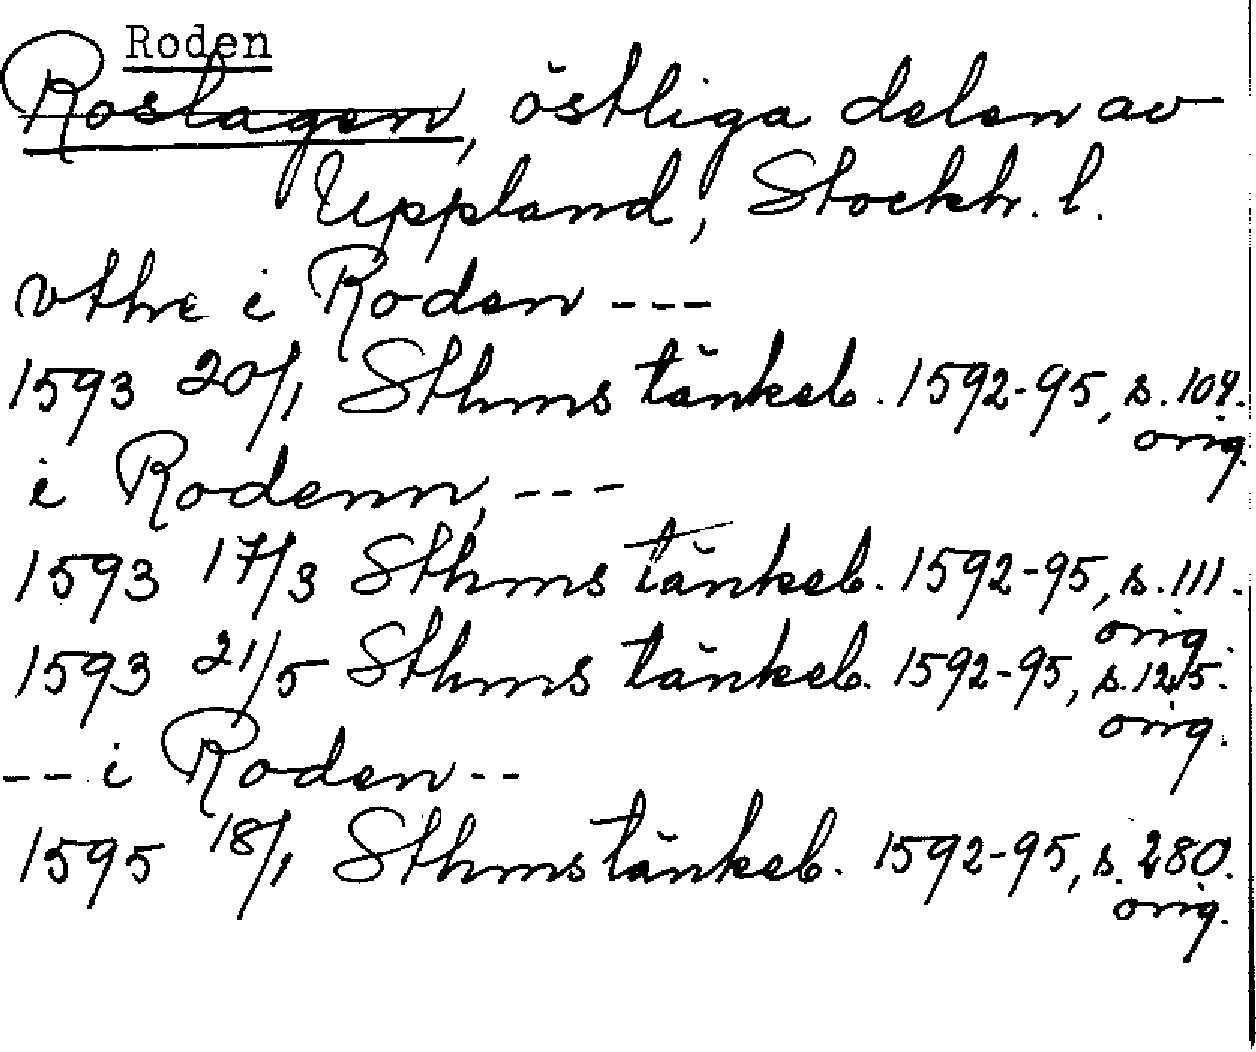 Roden
Roslagen, östliga delen av
Uppland, Stockh. l.
vthe i Roden ---
1593 20/1 Sthms tänkeb. 1592-95, s. 109.
orig.
i Rodenn, ---
1593 17/3 Sthms tänkeb. 1592-95, s. 111.
orig.
1593 21/5 Sthms tänkeb. 1592-95, s. 125.
orig.
--- i Roden --
1595 18/1 Sthms tänkeb. 1592-95, s. 280.
orig.